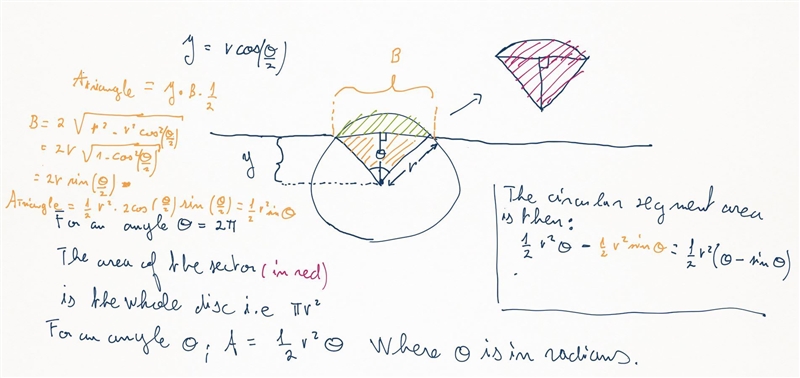 y = r cos(θ/2)
B
A triangle = y . B . 1/2
B = 2 √(r² - r² cos²(θ/2))
= 2r √(1 - cos²(θ/2))
= 2r sin(θ/2)
A triangle = 1/2 r² . 2cos(θ/2) sin(θ/2) = 1/2 r² sin θ
y
θ
r
For an angle θ = 2π
The area of the sector (in red)
is the whole disc i.e πr²
For an angle θ, A = 1/2 r² θ Where θ is in radians.
The circular segment area
is then:
1/2 r² θ - 1/2 r² sin θ = 1/2 r² (θ - sin θ)